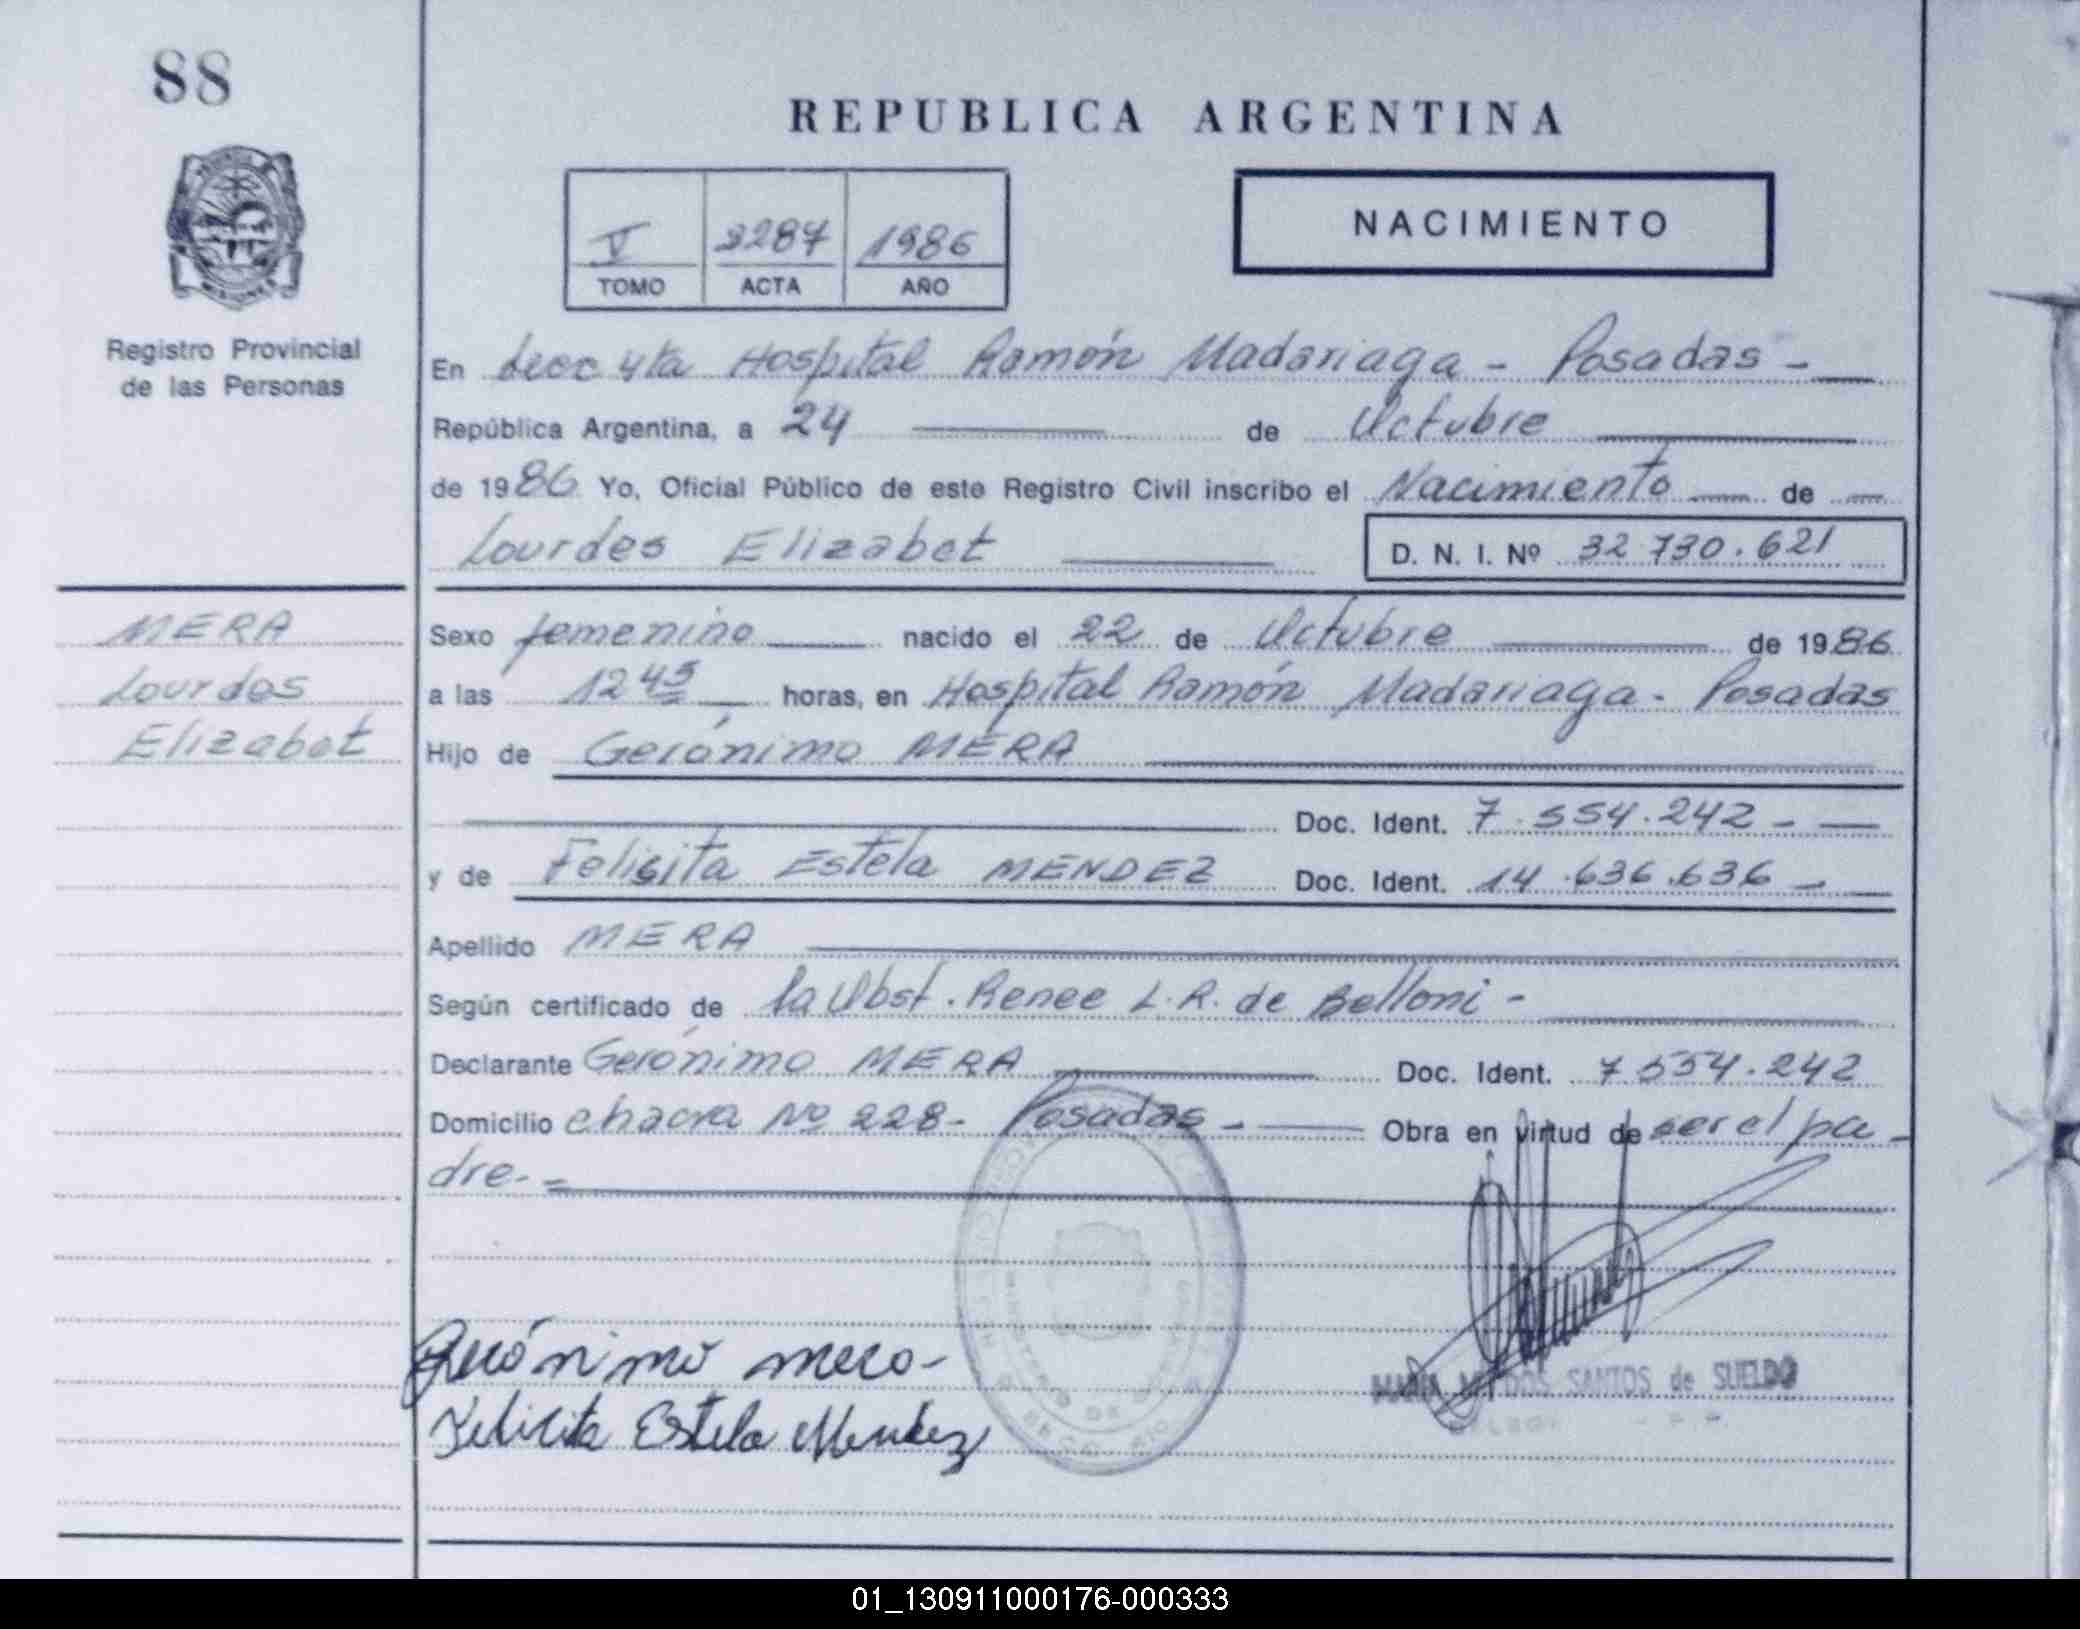 88
REPUBLICA ARGENTINA
V 3287 1986
TOMO ACTA AÑO
NACIMIENTO
Registro Provincial
de las Personas
En Secc 4ta Hospital Ramón Madariaga - Posadas -
República Argentina, a 24 de Octubre
de 1986 Yo, Oficial Público de este Registro Civil inscribo el Nacimiento de
Lourdes Elizabet D. N. I. Nº 32 730.621
MERA
Lourdes
Elizabet
Sexo femenino nacido el 22 de Octubre de 1986
a las 12 45 horas, en Hospital Ramón Madariaga - Posadas
Hijo de Gerónimo MERA
Doc. Ident. 7.554.242 -
y de Felisita Estela MENDEZ Doc. Ident. 14.636.636 -
Apellido MERA
Según certificado de la Obst. Renee L.R. de Belloni -
Declarante Gerónimo MERA Doc. Ident. 7554.242
Domicilio chacra Nº 228 - Posadas - Obra en virtud de ser el pa-
dre.-
Gerónimo mera-
Felicita Estela Mendez
DOS SANTOS de SUELDO
01_130911000176-000333